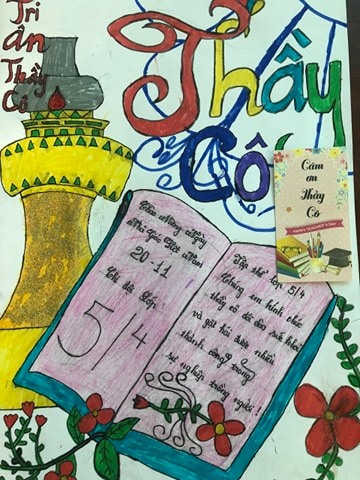 Tri
ân
Thầy
Cô
Thầy
Cô
Cám
ơn
Thầy
Cô
Chào Mừng Ngày
Nhà Giáo Việt Nam
20-11
Chi đội Lớp
5/4
Tập thể lớp 5/4
Chúng em kính chúc
thầy cô dồi dào sức khoẻ
và gặt hái được nhiều
thành công trong
sự nghiệp trồng người !